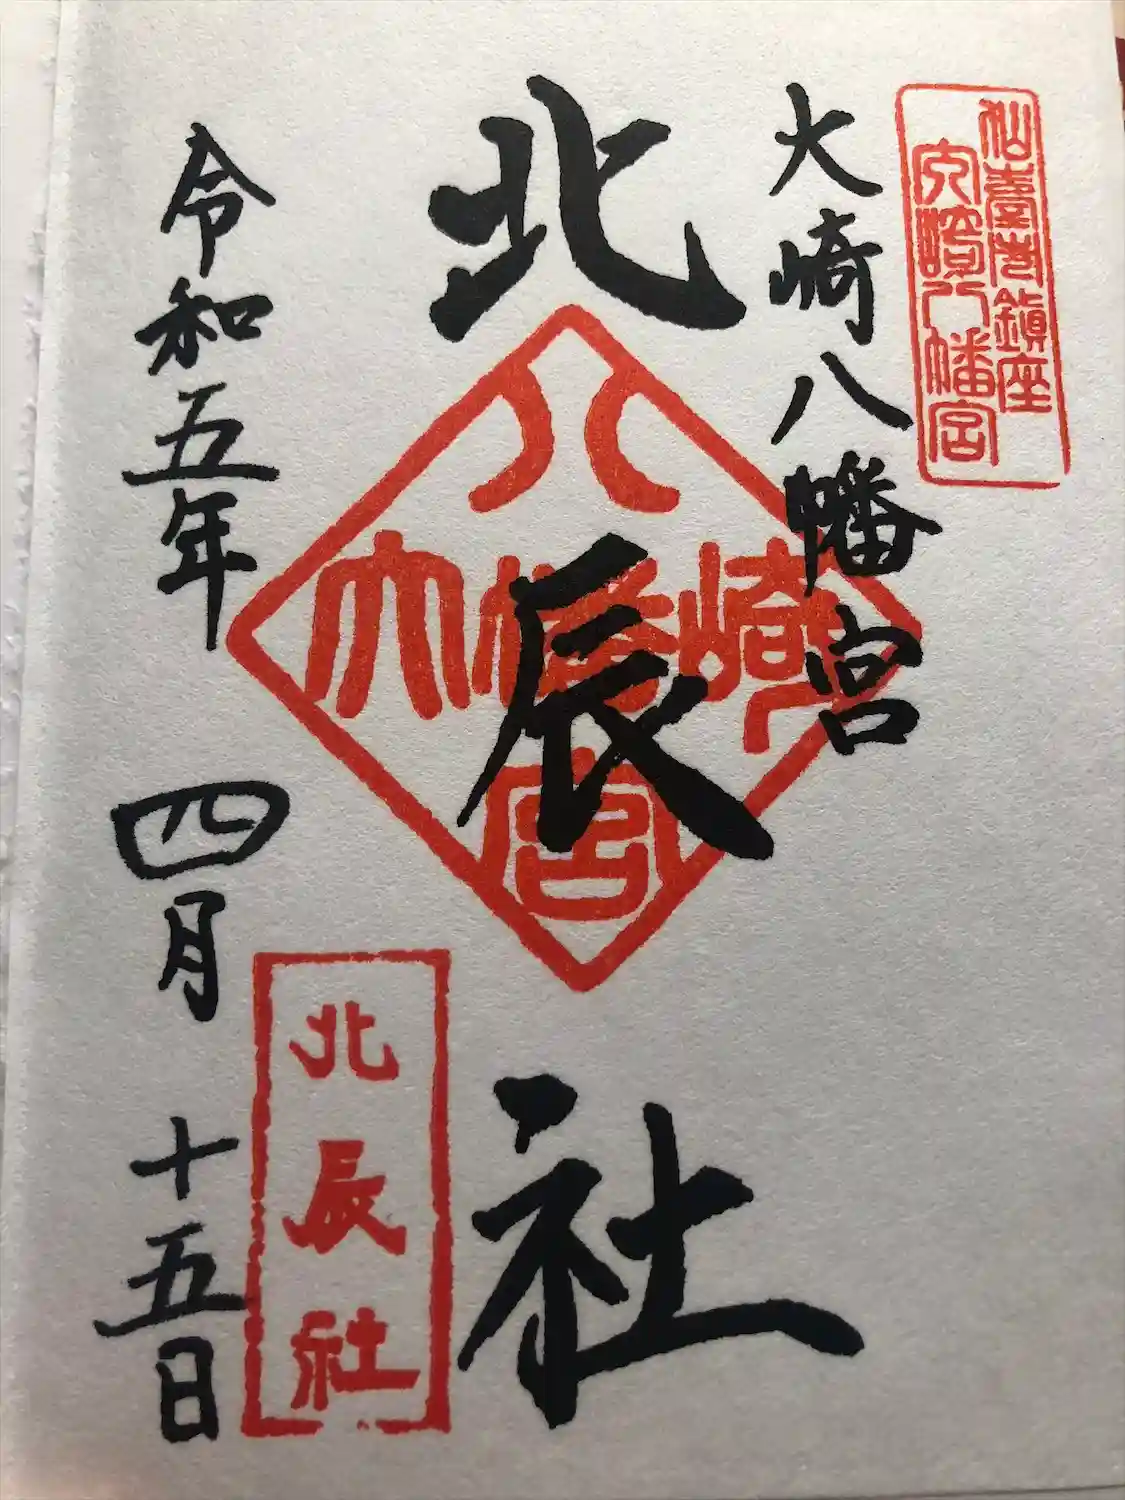 仙臺市鎮座
大崎八幡宮
大崎八幡宮
北辰社
八
大幡崎
宮
北辰社
令和五年 四月 十五日